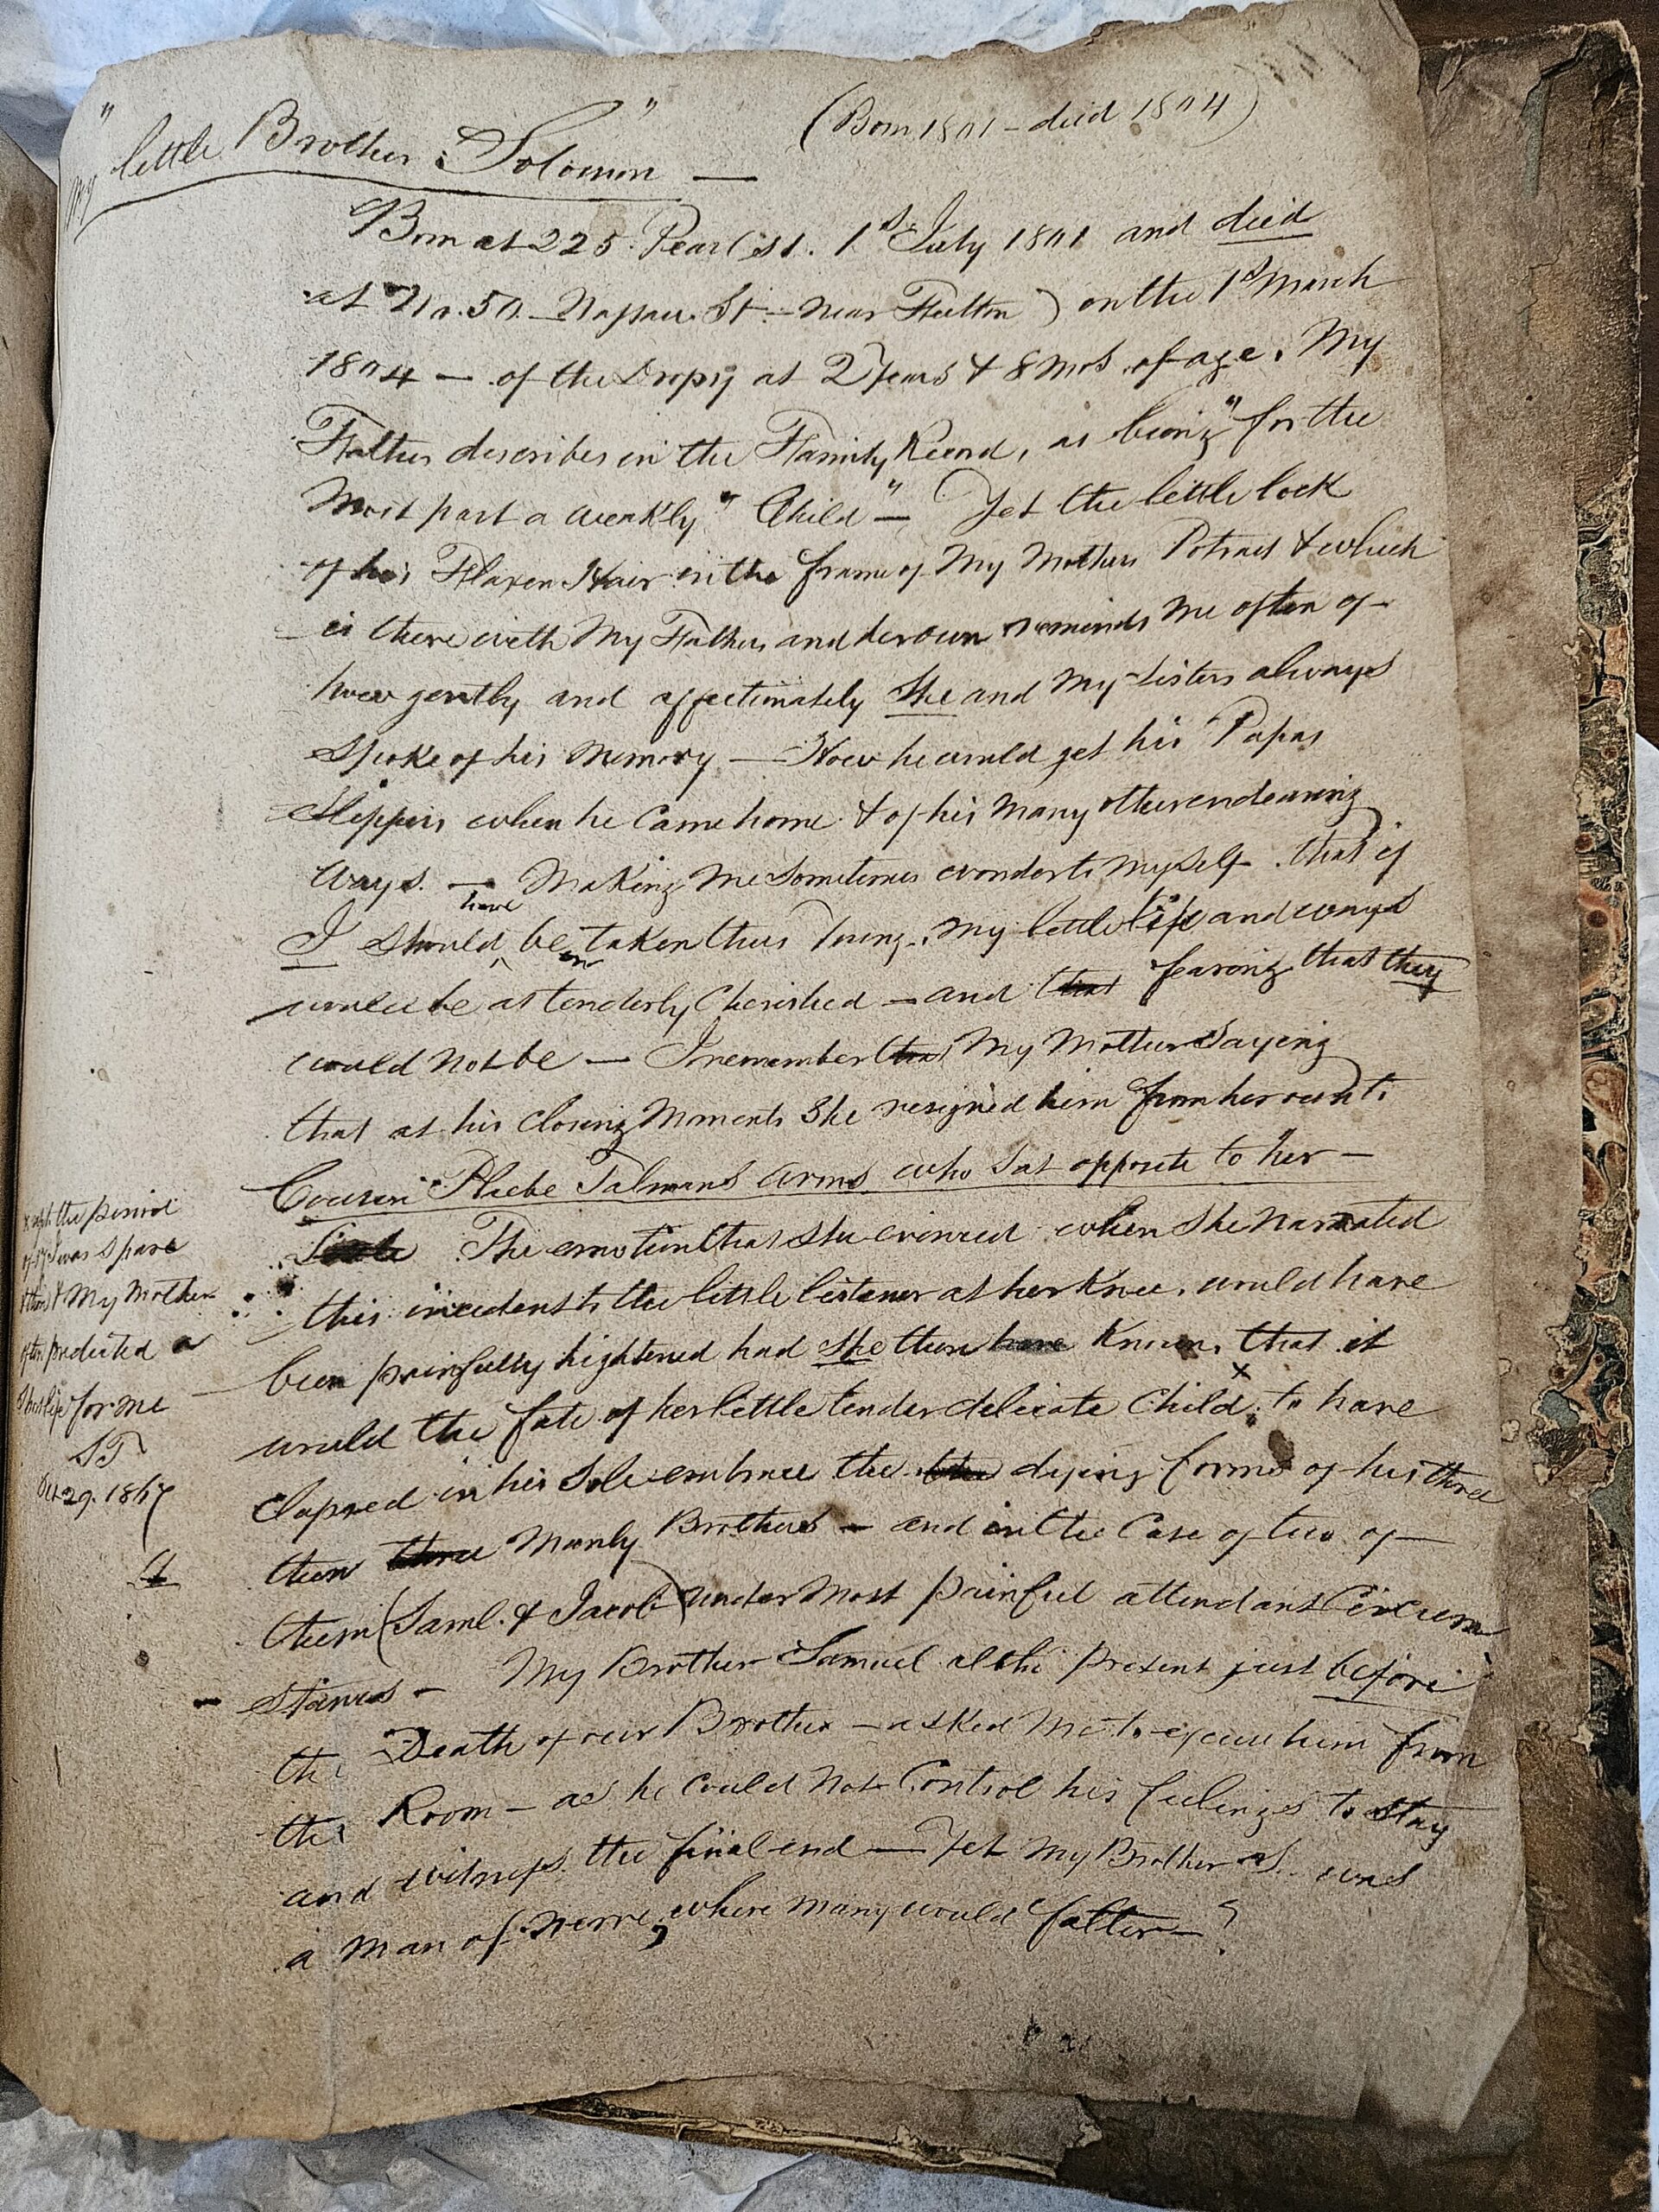 "My little Brother: Solomon" — (Born 1801 – died 1804)
Born at 225 Pearl St. 1st July 1801 and died
at No. 50 – Nassau St – near Fulton) on the 1st March
1804 — of the Dropsy at 2 Years & 8 Mos. of age. My
Father describes in the Family Record, as being "for the
Most part a weakly" Child" — Yet the little lock
of his Flaxen Hair in the frame of My Mothers Potrait & which
is there with My Fathers and her own reminds Me often of
how gently and affectimately She and My Sisters always
spoke of his Memory — How he would get his Papas
Slippers when he Came home & of his Many other endearing
Ways. — Making Me Sometimes wonder to Myself. that if
I should have been taken thus Young, My little life and ways
would be as tenderly Cherished — and that fearing that they
would not be — I remember that My Mother Saying
that at his Closing Moments She resigned him from her own to
Cousin Phebe Talmans Arms who Sat opposite to her —
The emotion that She evinced when She Narrated
this incident to the little listener at her Knee, would have
been painfully hightened had She then have Known, that it
would the fate of her little tender delicate Child x to have
Clapsed in his Sole embrace the dying forms of his three
then three Manly Brothers — and in the Case of two of
them (Saml. & Jacob) under Most painful attendant Circum
stances — My Brother Samuel altho' present just before
the Death of our Brother — asked Me to excuse him from
the Room — as he Could Not Control his feelings to Stay
and witness the final end — Yet My Brother S. was
a Man of nerve, where Many would falter — ?
x at the period
of I was spare
& thin & My Mother
often predicted a
Short life for me
ST
Oct 29. 1867